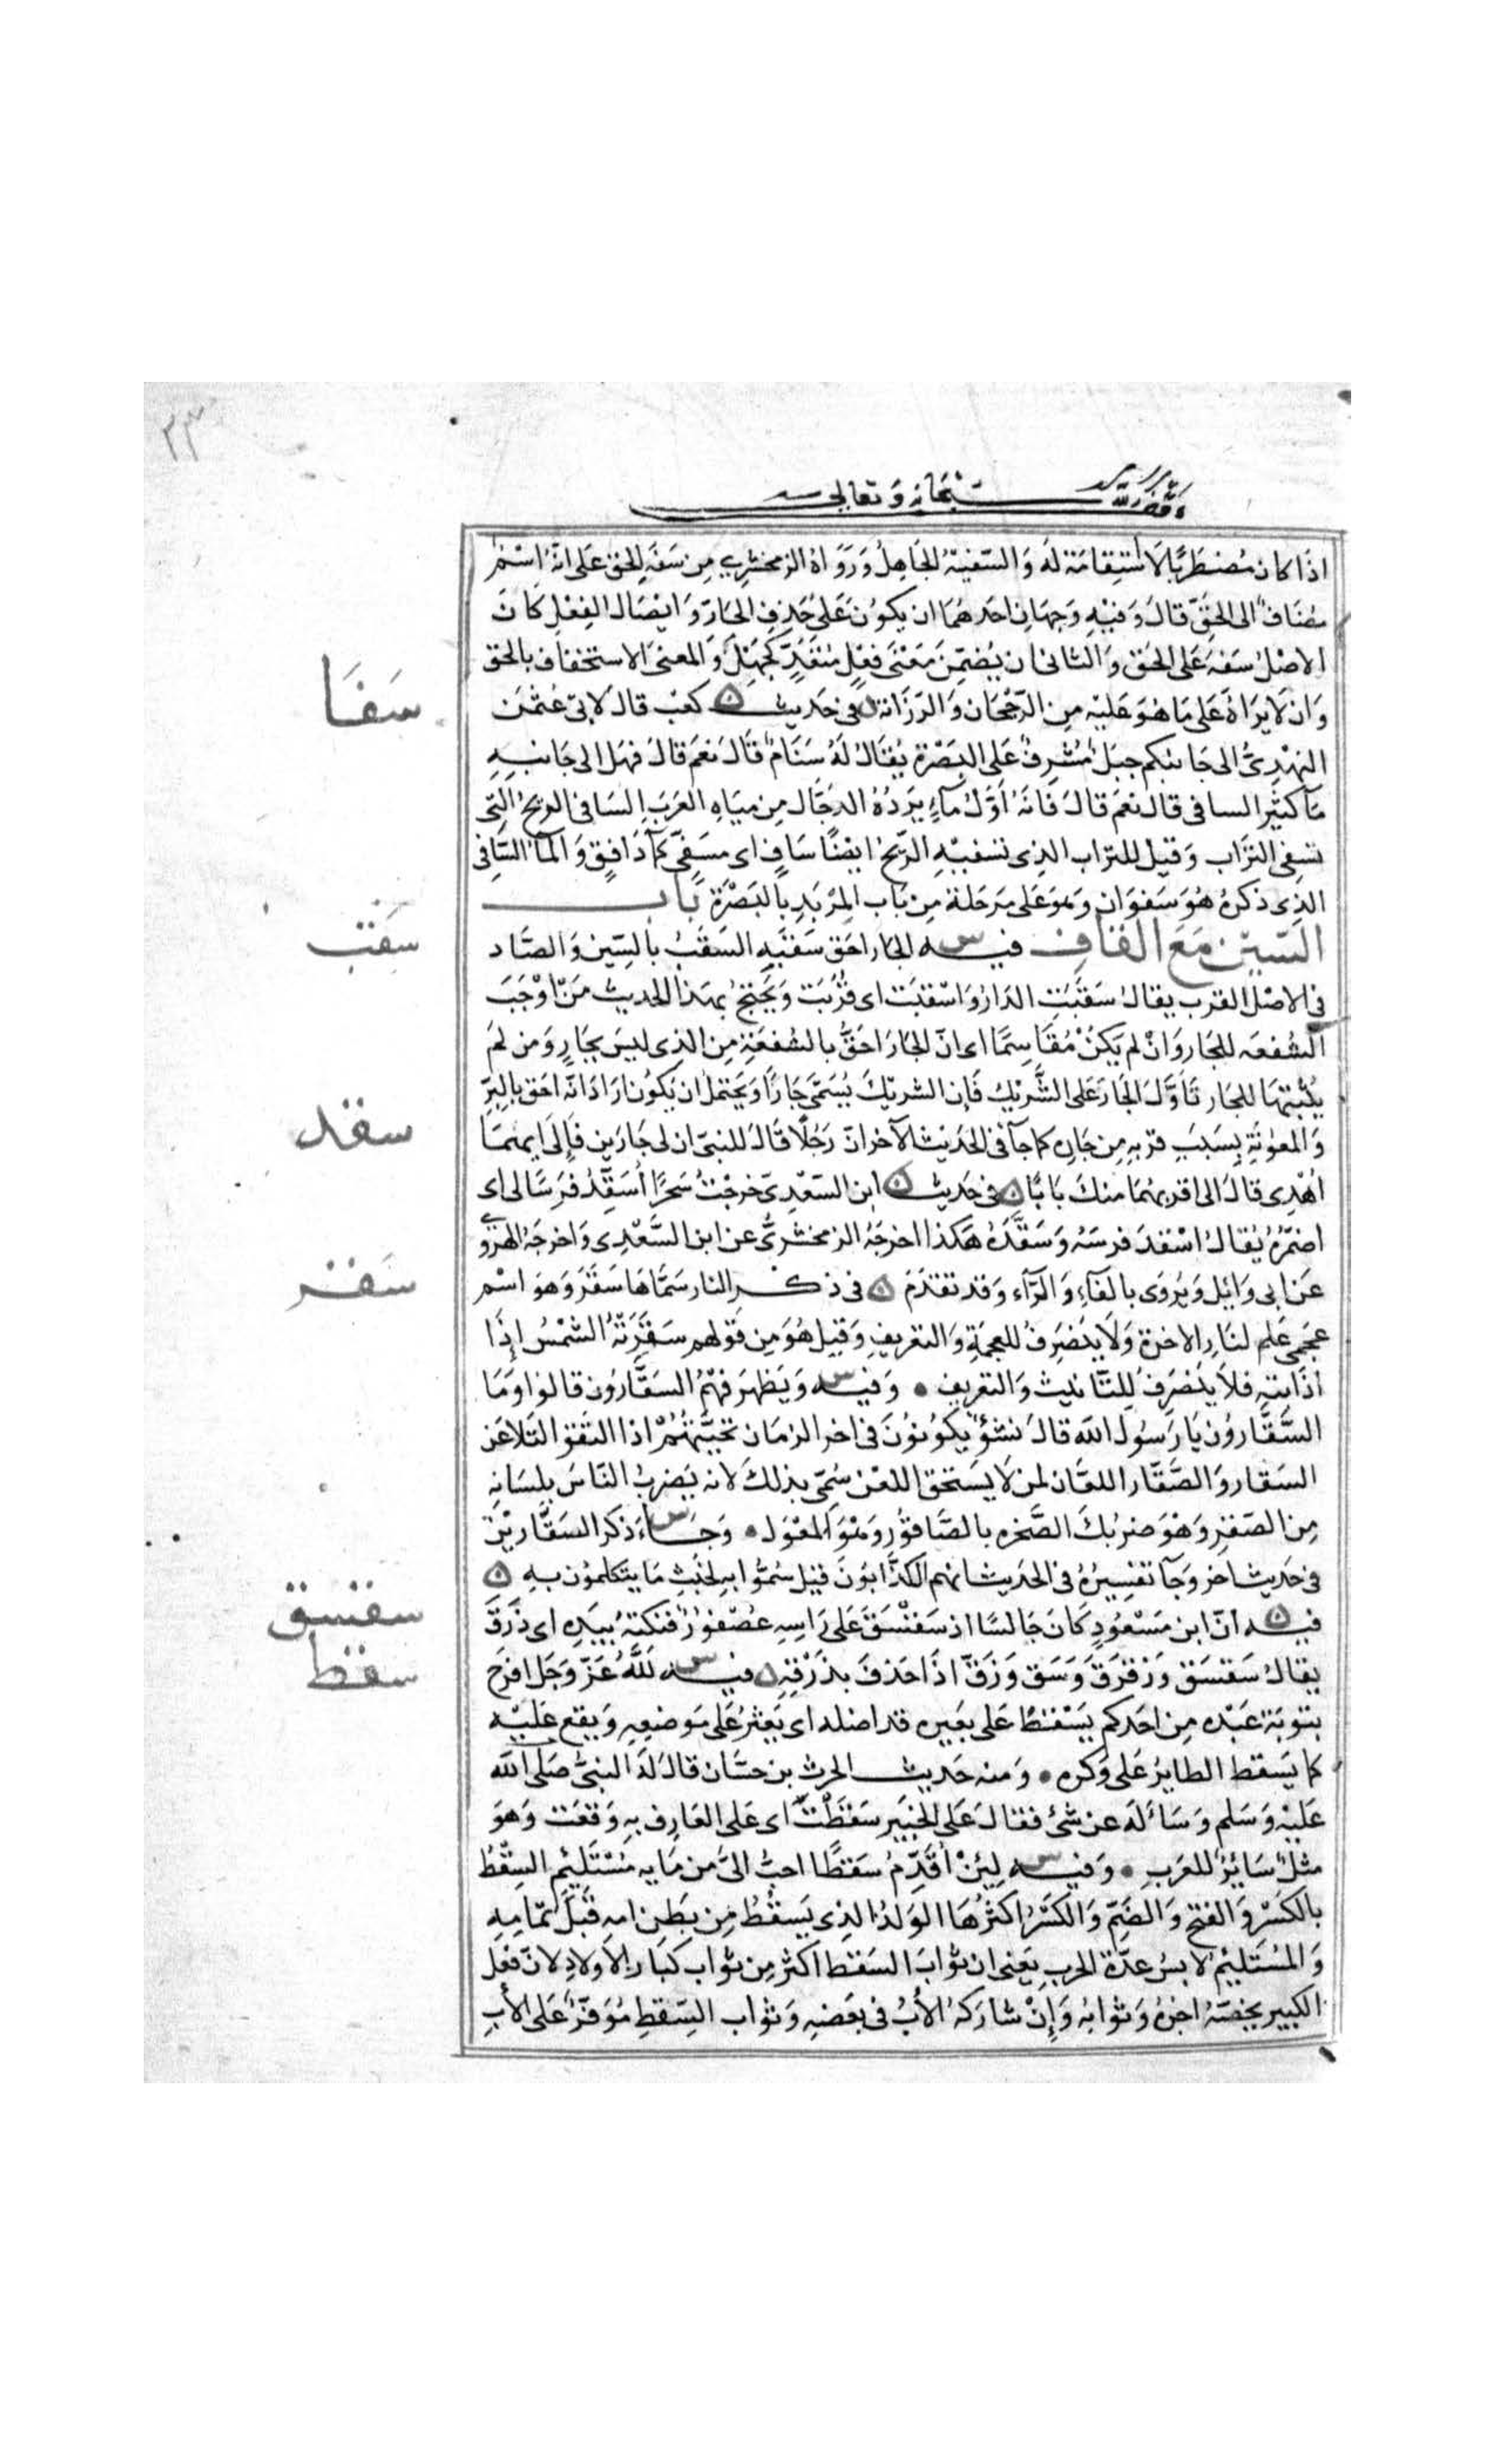 ٢٣
وقف لله سبحانه وتعالى
اذا كان مُضطَربًا لا استِقامَة لَه وَالسّفيهُ الجَاهِلُ وَرَوَاهُ الزمخشري مِن سَفَهِ الحق عَلى انّهُ اسْمٌ
مُضَافٌ الى الحَقّ قَالَ وَفيْهِ وَجهَانِ احَدهُمَا ان يكوُنَ عَلى حَذفِ الجَارّ وَايْصَال الفِعْلِ كَانَ
الاصْلُ سَفهَ عَلى الحَق وَالثانى ان يُضمّنَ مَعْنَى فِعْلٍ مُتَعَدٍّ كَجَهِلَ وَالمعنى الاستخفاف بالحق
وَان لَا يرَاهُ عَلى مَا هُوَ عَليْهِ مِن الرّجْحَان وَالرّزَانة ٥ فى حَديث كعْب قالَ لابى عُثمٰن
النهْدِىّ الى جَانبكم جبَلٌ مُشرِفٌ عَلى البَصْرَة يُقالُ لهُ سَنَامٌ قالَ نعَم قالَ فهَل الى جَانبِهِ
مَآ كثيْر السافى قال نعَم قالَ فَانهُ أوَّلُ مآءٍ يَرِدُهُ الدجّال مِن ميَاهِ العَرَبِ السَافى الريحُ التى
تسفى التراب وَقيلَ للتراب الذِى تسفيْهِ الرّيحُ ايضًا سَافٍ اى مسَفِىّ كمآءٍ دَافِقٍ وَالمآءُ السّافى
الذِى ذكرَهُ هُوَ سَفوَان وَهوَ عَلى مَرحَلة مِن بَاب المِرْبَدِ بالبَصْرَة بَاب
السّين مَعَ القاف فيه الجَار احَق بسَقبِهِ السَقَبُ بالسّين وَالصَّاد
فى الاصْل القرب يقالُ سَقبَتِ الدَارُ وَاسْقبَت اى قرُبَت وَيَحْتَجُّ بهَذا الحَديث مَنْ اوْجَبَ
الشُفعَه للجَار وَانْ لم يكنْ مُقَاسِمًا اى انّ الجَارَ احَقُّ بالشفعَةِ مِن الذِى ليسَ بجَارٍ وَمَن لم
يُثْبتهَا للجَار تَأوَّلَ الجَارَ عَلى الشَّرِيْكِ فَإن الشريْكَ يُسَمّى جَارًا وَيَحتملُ ان يَكُونَ ارَادَ انّه احَق بالبِرّ
وَالمَعوْنَةِ بِسَبَبِ قربهِ مِن جَارِه كما جآء فى الحَديث الآخر انّ رَجُلًا قَالَ للنبىّ ان لى جَارَين فَإلى ايهمَا
اهْدِى قالَ الى اقربهمَا منكَ بَابًا ٥ فى حَديث ابن السّعْدِىّ خرجْتُ سَحَرًا أُسَقِّدُ فَرَسًا لى اى
اضَمّرُهُ يُقالُ اسْقدَ فرسَهُ وَسَقّدَهُ هَكذا اخرجَهُ الزمخشرىُّ عن ابن السَّعْدِى وَاخرجَهُ الهرَوى
عَن ابى وَائِل وَيُروَى بالفَآءِ وَالرّآء وَقد تقدّمَ ٥ فى ذكر النار سَمّاهَا سَقَرَ وَهوَ اسْم
عجَمِى عَلم لنَارِ الاخرَة وَلَا ينصَرِفُ للعجمَةِ وَالتعريفِ وَقيلَ هُوَ مِن قوْلهم سَقَرَتهُ الشمْسُ إذَا
أذَابتهِ فلَا يَنصَرفُ للتّأنيث وَالتعريف ٠ وَفيه وَيَظهرَ فيهمُ السَقَّارُون قالوا وَمَا
السَّقَّارُون يَا رَسُولَ الله قالَ نشؤٌ يَكونوُنَ فى اخر الزمَان تحيَّتهُمْ اذا التقوا التلاعَن
السَقّار وَالصَّقّار اللعّان لمن لَا يَستحق اللعْن سُمّى بذلكَ لانه يَضربُ النّاسَ بلسَانه
مِن الصّقرِ وَهْوَ ضربُكَ الصَّخره بالصَّاقوُر وَهْوَ المعْوَل ٠ وَجَاءَ ذكر السَقَّارِيْنَ
فى حَديث اخر وَجآء تفسِيرُهُ فى الحَديث انهم الكذَّابُونَ قيْل سُمُّوا بهِ لخبْثِ مَا يتكلموُن بهِ ٥
فيه انّ ابن مَسْعُودٍ كَانَ جَالسًا اذ سَقْسَقَ عَلى رَاسِهِ عُصْفوُرٌ فنكتهُ بيَدِه اى ذَرَقَ
يقالُ سَقسَق وَزقزَقَ وَسَق وَزَقّ اذَا حَذفَ بذَرْقِهِ ٥ فيه لَلّهُ عَزّ وَجَل افرَح
بتوبَة عَبْدِه مِن احَدكم يَسْقطُ عَلى بَعيره قد اضله اى يَعْثرُ عَلى مَوضعِهِ وَيقع عَليْه
كما يَسقط الطايرُ عَلى وَكره ٠ وَمنه حَديث الحرث بن حسَّان قالَ لَهَ النبىُّ صَلى الله
عَليْهِ وَسَلم وَسَألهَ عن شئ فقالَ عَلى الخبيْر سَقطْتَ اى عَلى العَارِف بهِ وَقعْت وَهوَ
مثلٌ سَائِرٌ للعَرَب ٠ وَفيه لَئِنْ اُقَدِّمُ سَقطًا احبُّ الىَّ من مَايه مُسْتَلئِم السِقْطُ
بالكسْر وَالفتح وَالضَمّ وَالكسْرُ اكثرُهَا الوَلدُ الذى يَسقُطُ مِن بَطنِ امهِ قَبْلَ تمَامِهِ
وَالمُستَلئِمُ لابسُ عدّة الحَربِ يَعنى ان ثوَابَ السَقط اكثر مِن ثوَاب كبَارِ الاولادِ لانّ فعْل
الكبير يخصّهُ اجرُهُ وَثوابهُ وَإنْ شارَكهُ الأبُ فى بَعضهِ وَثوابُ السِقطِ مُوَفّرٌ عَلى الأبِ
سَفَا
سَقَب
سقد
سَقر
سقسق
سقط